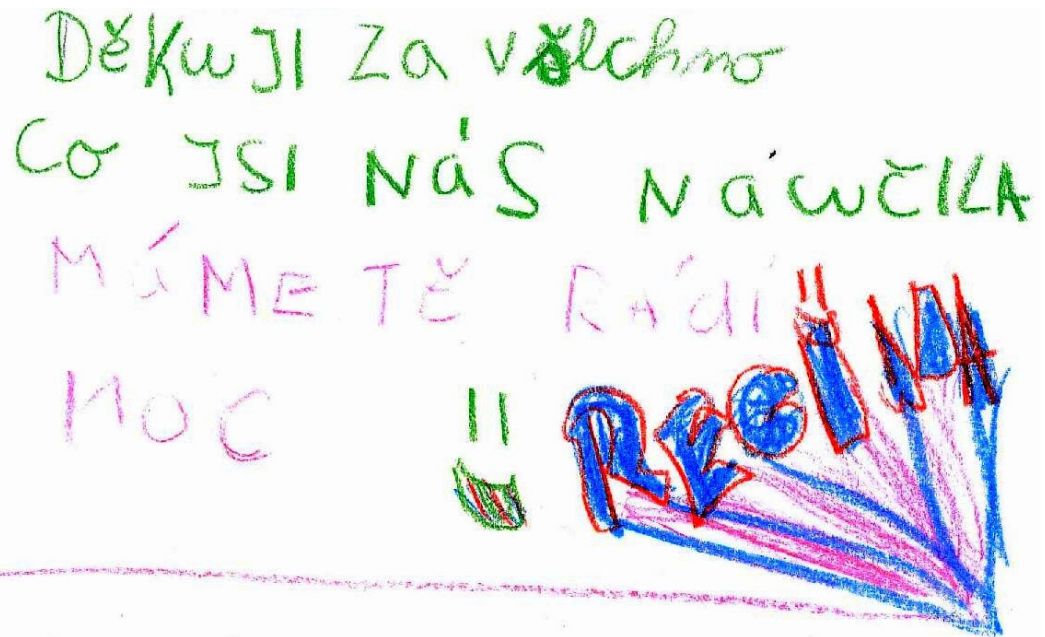 DěKuJI Za všechno
Co JSI Náš NáuČILA
MáME TĚ RÁdi
MOC
REGÍNA